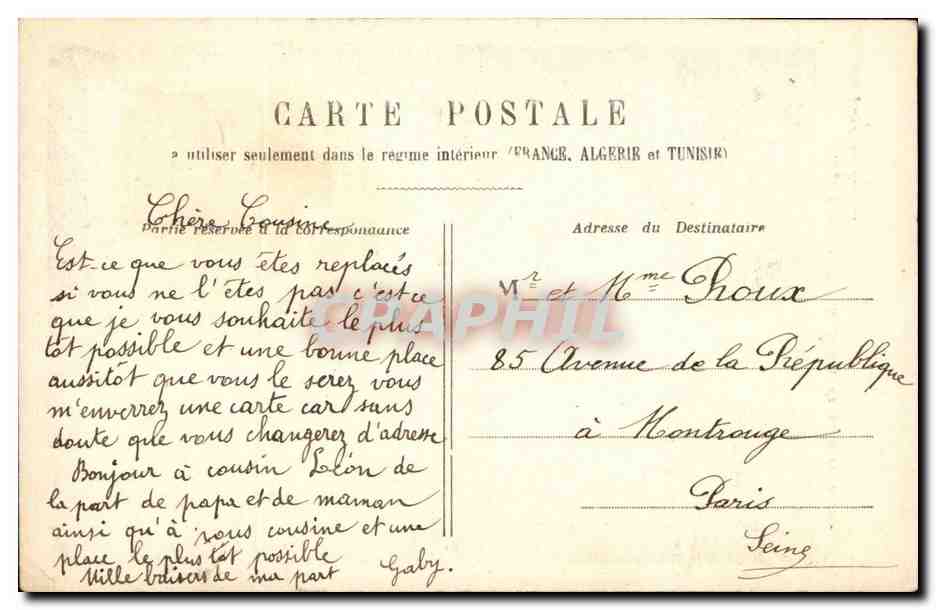 CARTE POSTALE
a utiliser seulement dans le régime intérieur (FRANCE, ALGERIE et TUNISIE)
Chère Cousine
Partie réservée à la correspondance
Est-ce que vous êtes replacés
si vous ne l'êtes pas c'est ce
que je vous souhaite le plus
tôt possible et une bonne place
aussitôt que vous le serez vous
m'enverrez une carte car sans
doute que vous changerez d'adresse
Bonjour à cousin Léon de
la part de papa et de maman
ainsi qu'à vous cousine et une
place le plus tôt possible
Mille baisers de ma part Gaby.
Adresse du Destinataire
Mr et Mme Proux
85 Avenue de la République
à Montrouge
Paris
Seine
CPAPHIL